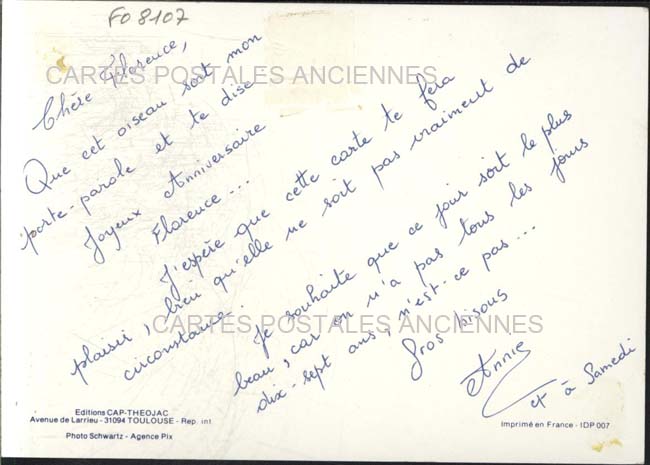 FO 8107
CARTES POSTALES ANCIENNES
Chère Florence,
Que cet oiseau soit mon
porte-parole et te dise
Joyeux Anniversaire
Florence...
J'espère que cette carte te fera
plaisir, bien qu'elle ne soit pas vraiment de
circonstance.
Je souhaite que ce jour soit le plus
beau, car on n'a pas tous les jours
dix-sept ans, n'est-ce pas...
Gros bisous
Annie
et à Samedi
CARTES POSTALES ANCIENNES
Editions CAP-THEOJAC
Avenue de Larrieu - 31094 TOULOUSE - Rep. int.
Photo Schwartz - Agence Pix
Imprimé en France - IDP 007